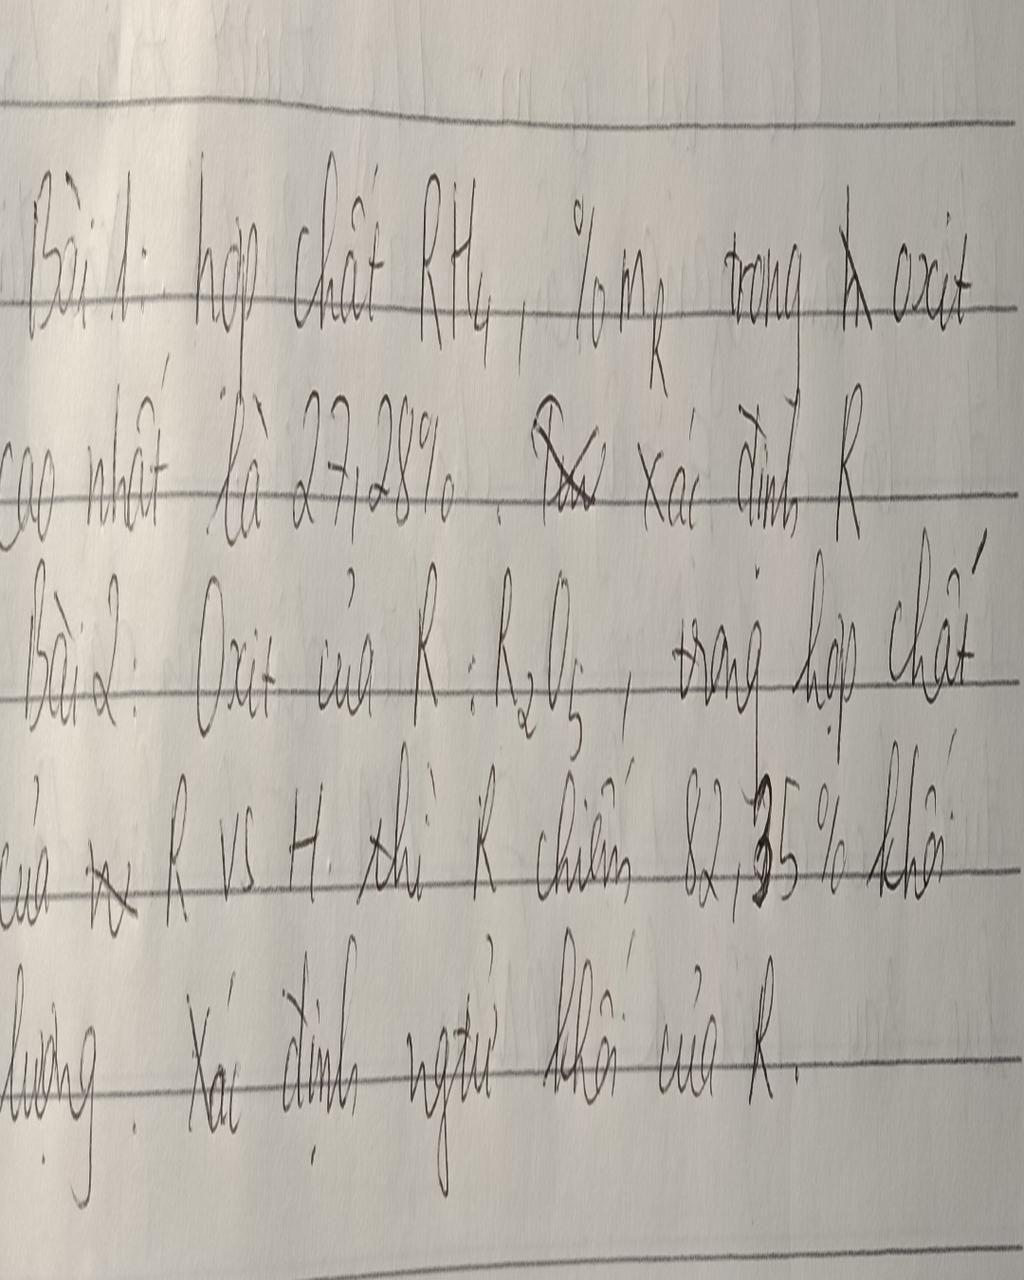 Bài 1. hợp chất RH4, %mR trong oxit
cao nhất là 27,28%. xác định R
Bài 2: Oxit của R: R2O5, trong hợp chất
của R vs H thì R chiếm 82,35% khối
lượng. Xác định ngtử khối của R.